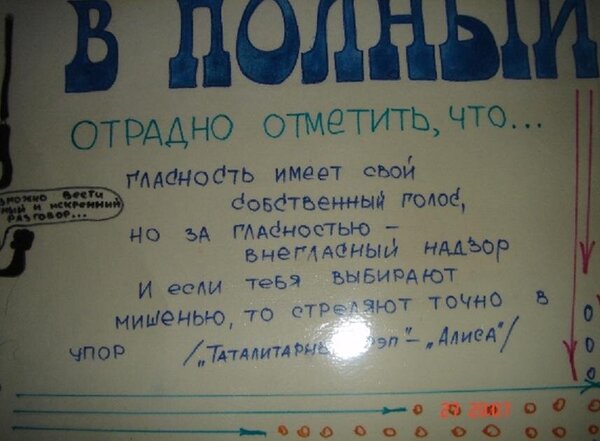 В ПОЛНЫЙ
ОТРАДНО ОТМЕТИТЬ, ЧТО...
ГЛАСНОСТЬ ИМЕЕТ СВОЙ
СОБСТВЕННЫЙ ГОЛОС,
НО ЗА ГЛАСНОСТЬЮ –
ВНЕГЛАСНЫЙ НАДЗОР
И ЕСЛИ ТЕБЯ ВЫБИРАЮТ
МИШЕНЬЮ, ТО СТРЕЛЯЮТ ТОЧНО В
УПОР /„ТАТАЛИТАРНЫЙ РЭП"– „АЛИСА"/
ВЕСТИ
И ИСКРЕННИЙ
РАЗГОВОР...